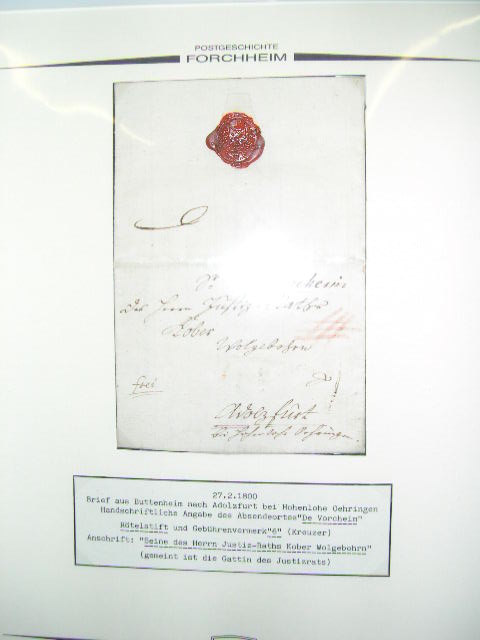 POSTGESCHICHTE
FORCHHEIM
des Herrn
Kober
Wolgebohrn
frei
Adolzfurt
bei Hohenlohe Oehringen
27.2.1800
Brief aus Buttenheim nach Adolzfurt bei Hohenlohe Oehringen
Handschriftliche Angabe des Absendeortes"De Vorchein"
Rötelstift und Gebührenvermerk"6" (Kreuzer)
Anschrift: "Seine des Herrn Justiz-Raths Kober Wolgebohrn"
(gemeint ist die Gattin des Justizrats)